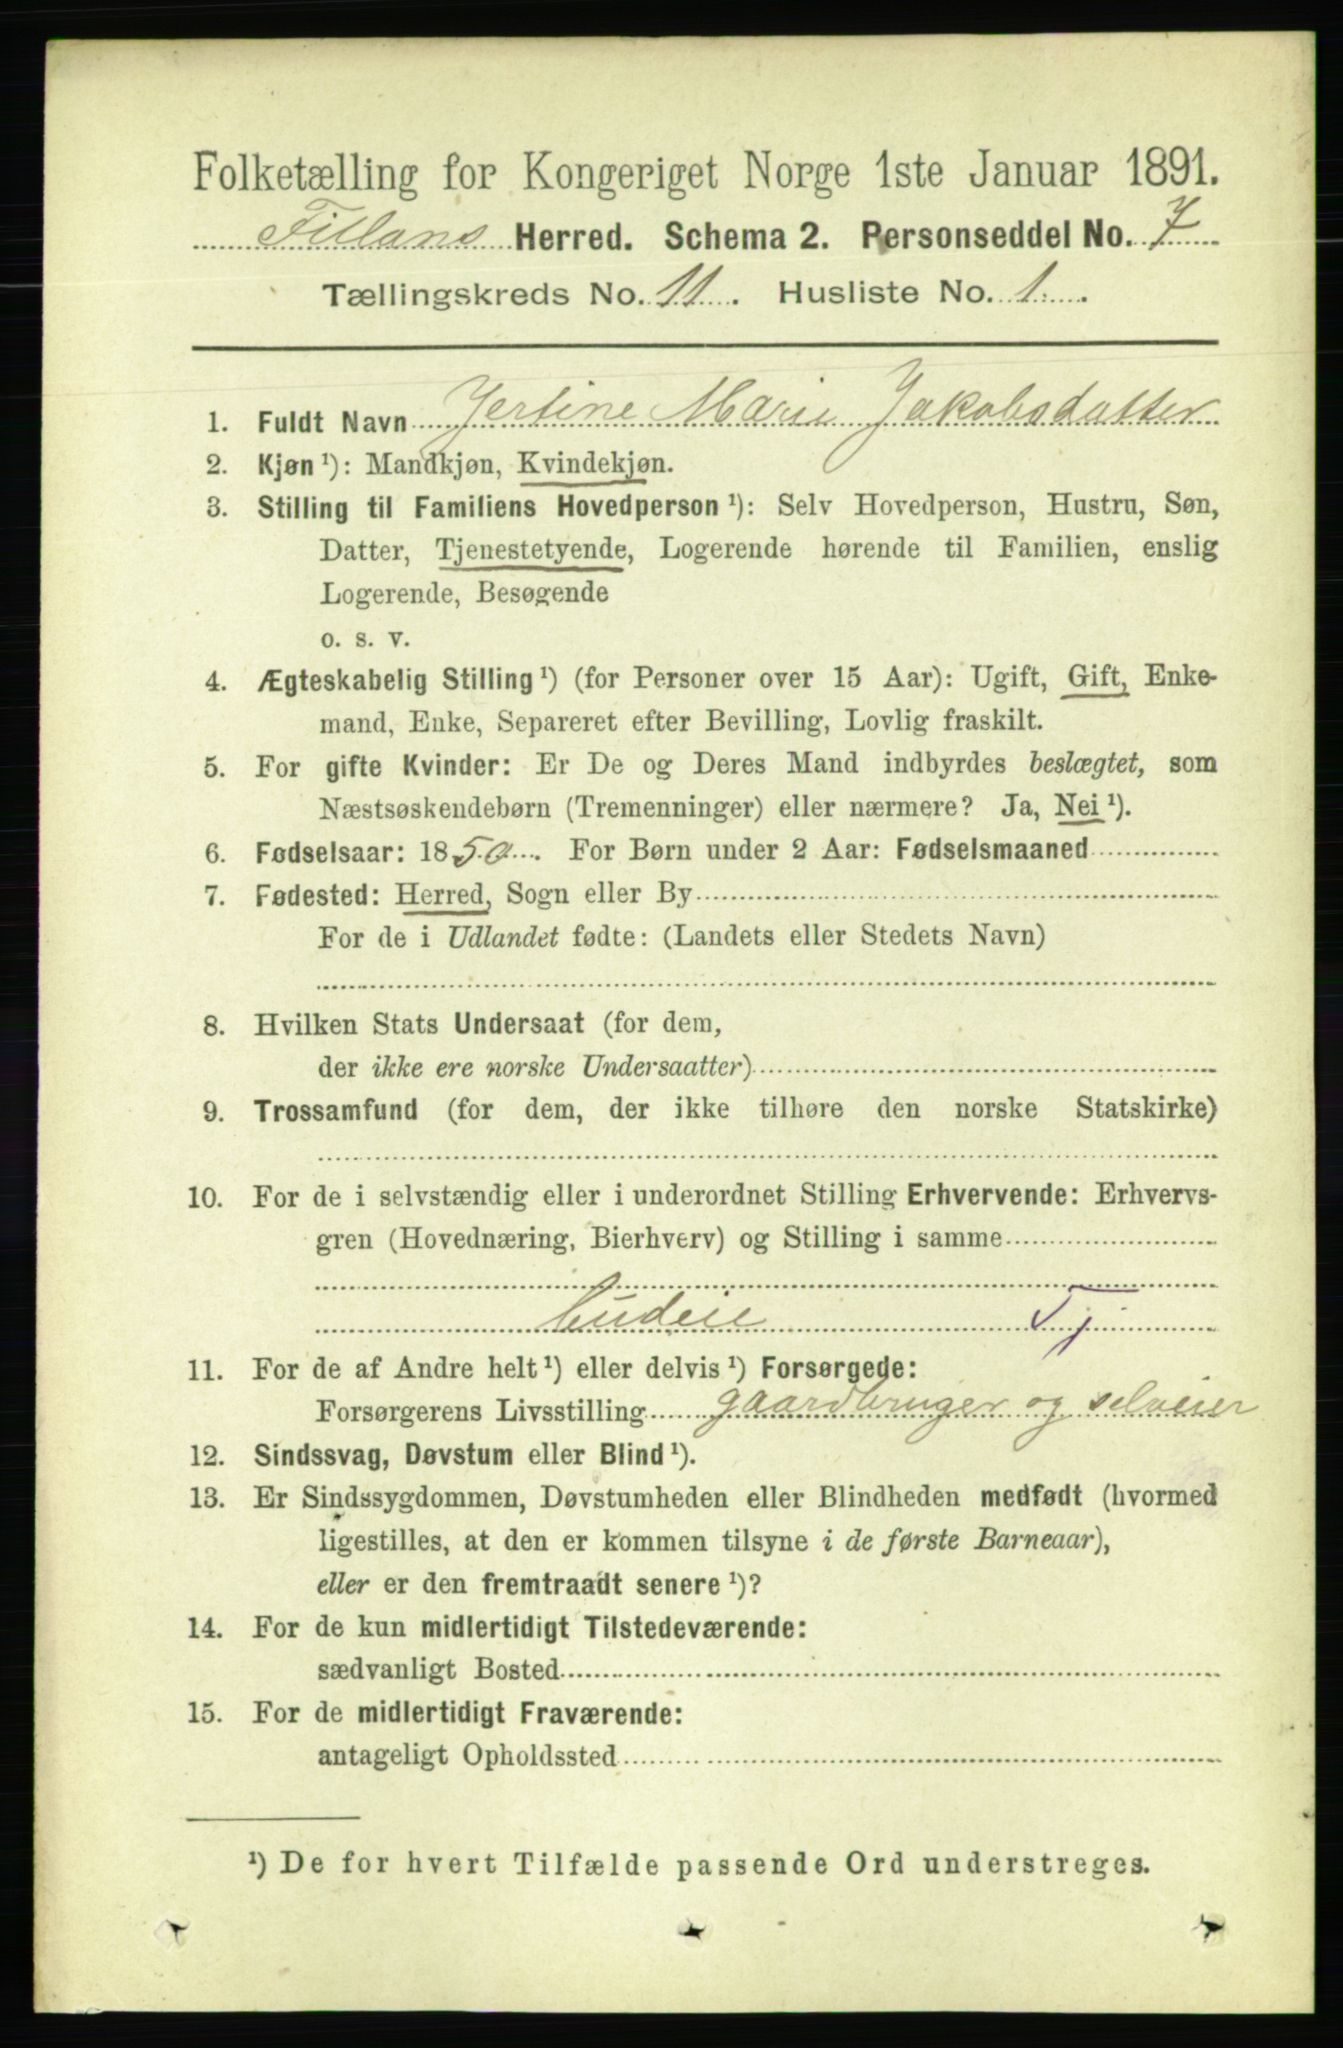 Folketælling for Kongeriget Norge 1ste Januar 1891.
Fillans Herred. Schema 2. Personseddel No. 7
Tællingskreds No. 11. Husliste No. 1.
1. Fuldt Navn Jertine Marie Jakobsdatter
2. Kjøn ¹): Mandkjøn, Kvindekjøn.
3. Stilling til Familiens Hovedperson ¹): Selv Hovedperson, Hustru, Søn,
Datter, Tjenestetyende, Logerende hørende til Familien, enslig
Logerende, Besøgende
o. s. v.
4. Ægteskabelig Stilling ¹) (for Personer over 15 Aar): Ugift, Gift, Enke-
mand, Enke, Separeret efter Bevilling, Lovlig fraskilt.
5. For gifte Kvinder: Er De og Deres Mand indbyrdes beslægtet, som
Næstsøskendebørn (Tremenninger) eller nærmere? Ja, Nei ¹).
6. Fødselsaar: 1850. For Børn under 2 Aar: Fødselsmaaned
7. Fødested: Herred, Sogn eller By
For de i Udlandet fødte: (Landets eller Stedets Navn)
8. Hvilken Stats Undersaat (for dem,
der ikke ere norske Undersaatter)
9. Trossamfund (for dem, der ikke tilhøre den norske Statskirke)
10. For de i selvstændig eller i underordnet Stilling Erhvervende: Erhvervs-
gren (Hovednæring, Bierhverv) og Stilling i samme
budeie Tj
11. For de af Andre helt ¹) eller delvis ¹) Forsørgede:
Forsørgerens Livsstilling gaardbruger og selveier
12. Sindssvag, Døvstum eller Blind ¹).
13. Er Sindssygdommen, Døvstumheden eller Blindheden medfødt (hvormed
ligestilles, at den er kommen tilsyne i de første Barneaar),
eller er den fremtraadt senere ¹)?
14. For de kun midlertidigt Tilstedeværende:
sædvanligt Bosted
15. For de midlertidigt Fraværende:
antageligt Opholdssted
¹) De for hvert Tilfælde passende Ord understreges.